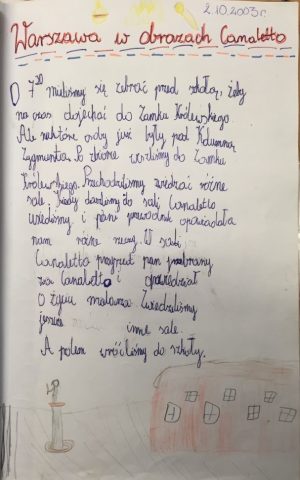 2.10.2003 r.
Warszawa w obrazach Canaletto
O 7³⁰ musieliśmy się zebrać przed szkołą, żeby
na czas dojechać do Zamku Królewskiego.
Ale niektóre osoby już były pod Kolumną
Zygmunta. Po zbiorce weszliśmy do Zamku
Królewskiego. Przechodziliśmy zwiedzać różne
sale. Kiedy doszliśmy do sali Canaletto
usiedliśmy i pani przewodnik opowiadała
nam różne rzeczy. W sali
Canaletto przyszedł pan przebrany
za Canaletto i opowiedział
o życiu malarza. Zwiedzaliśmy
jeszcze inne sale.
A potem wróciliśmy do szkoły.